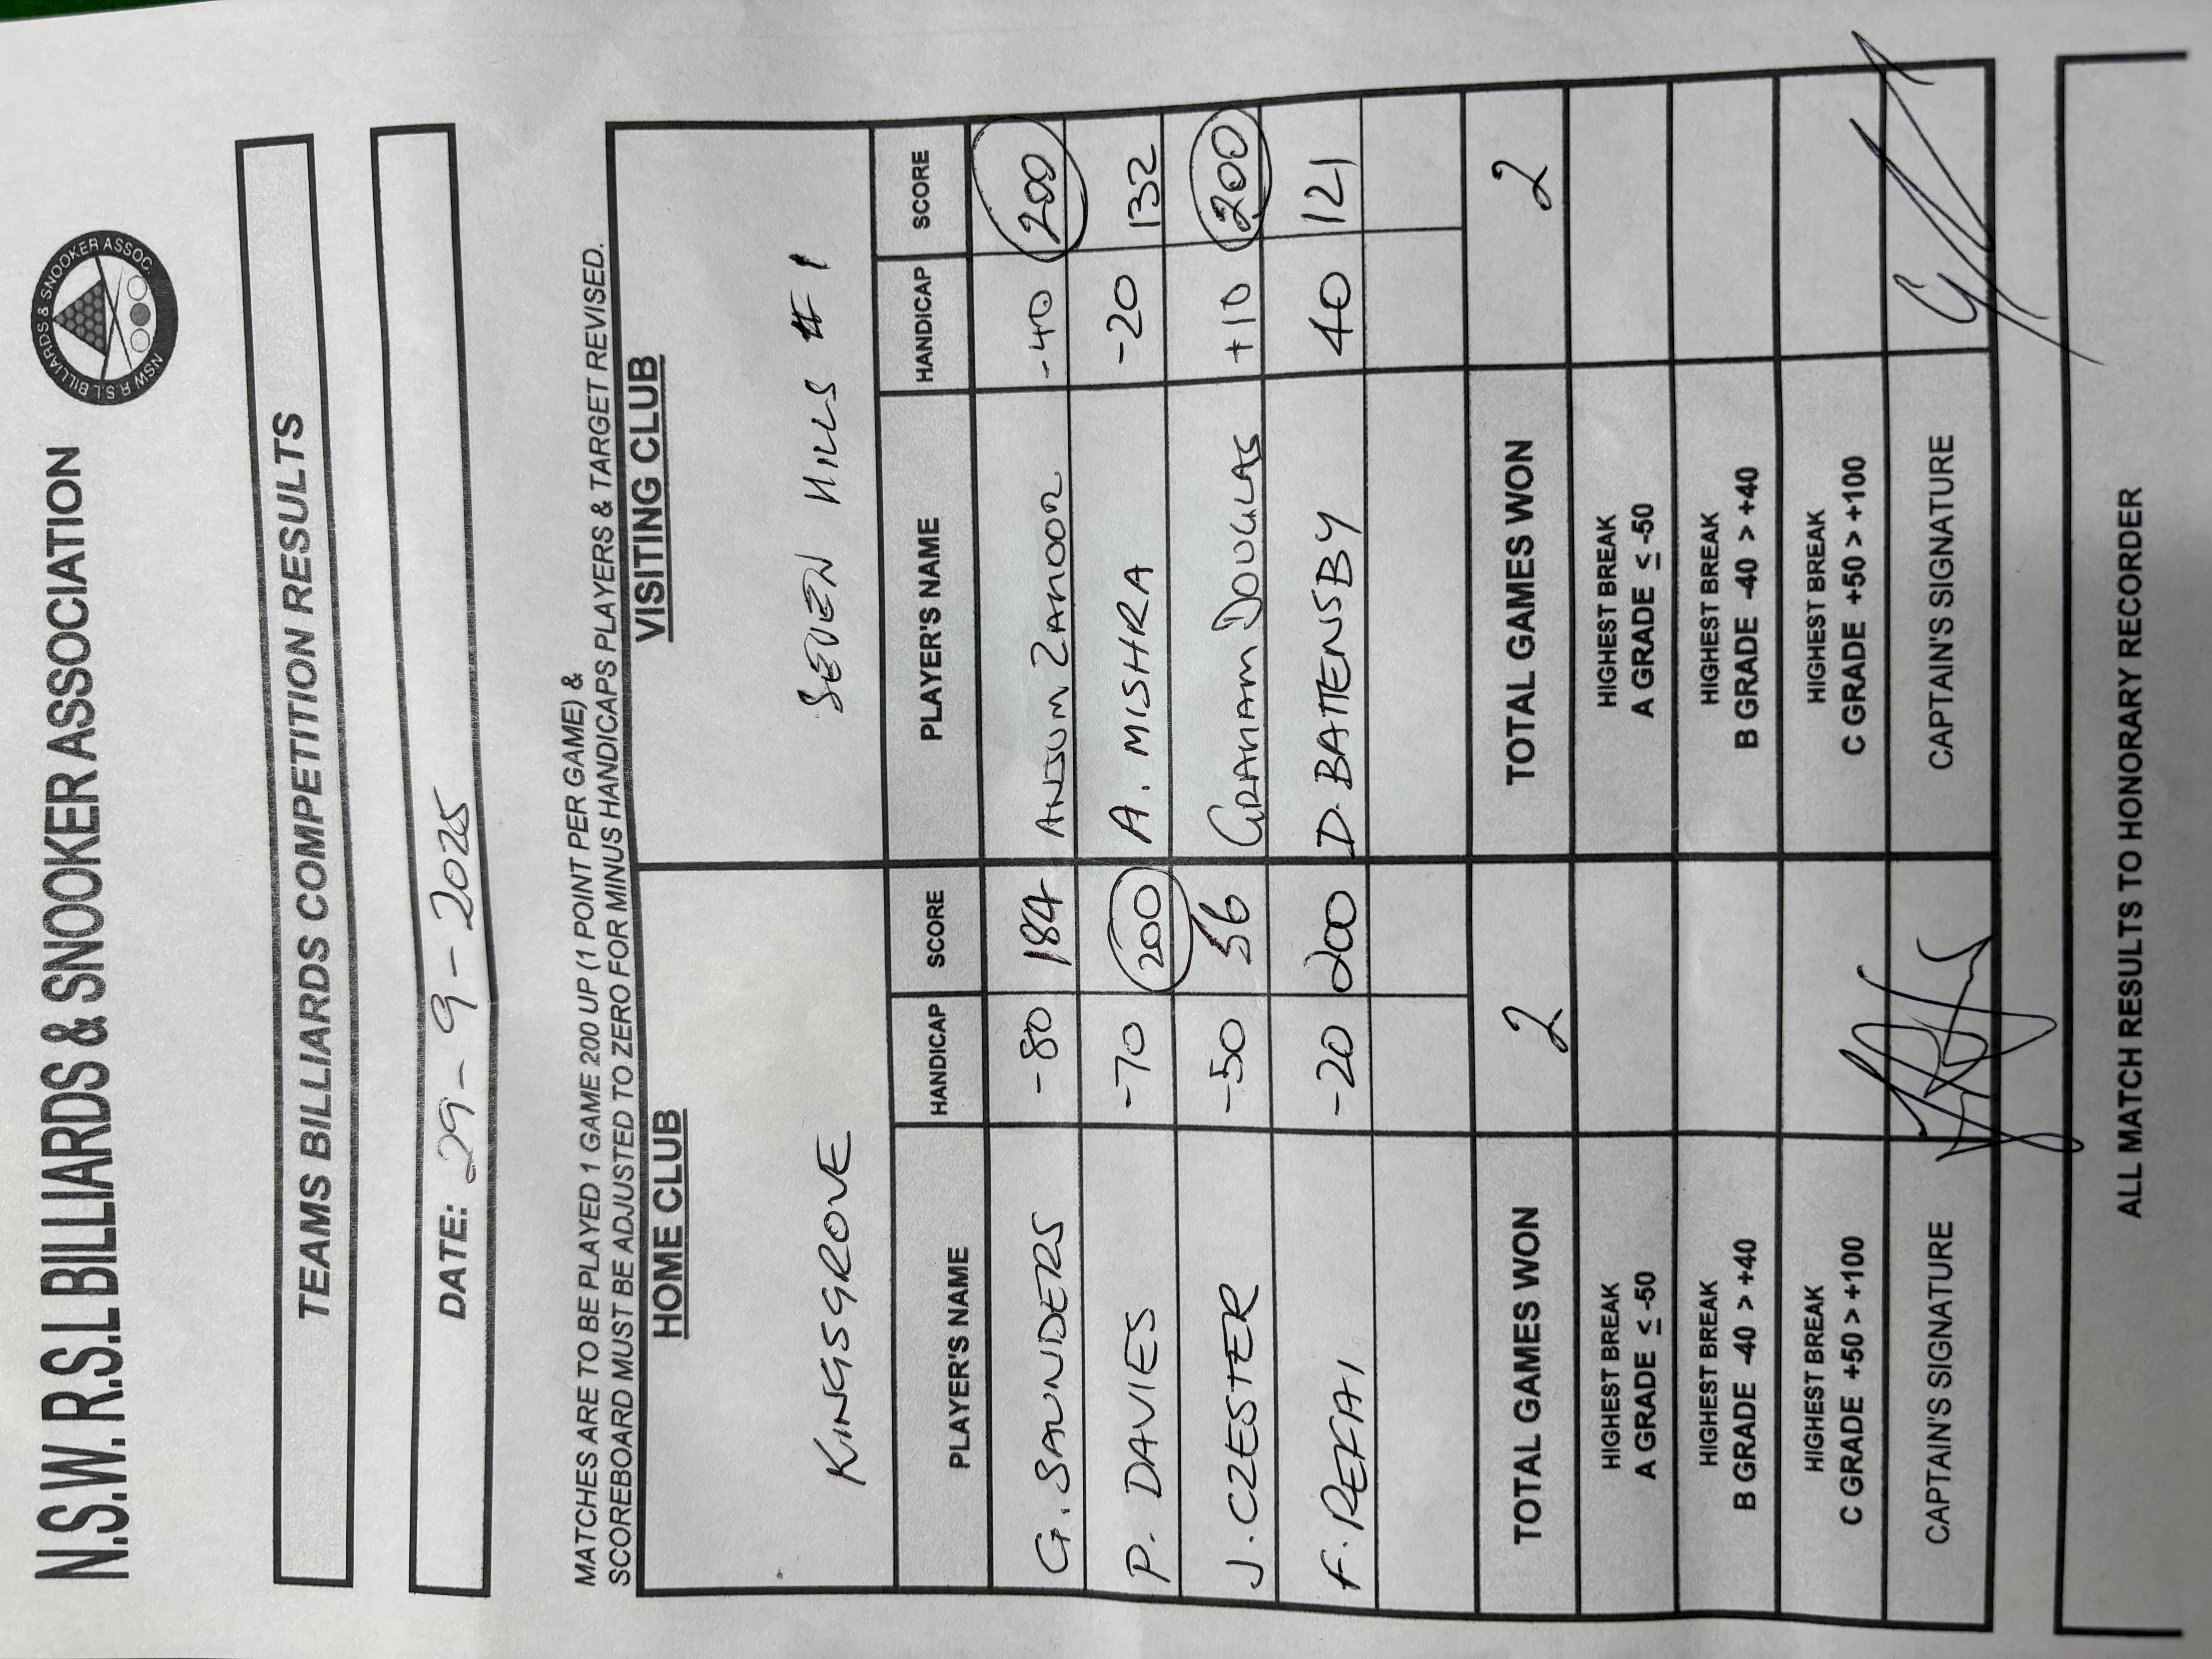 N.S.W. R.S.L BILLIARDS & SNOOKER ASSOCIATION
NSW R.S.L BILLIARDS & SNOOKER ASSOC.
TEAMS BILLIARDS COMPETITION RESULTS
DATE: 29-9-2025
MATCHES ARE TO BE PLAYED 1 GAME 200 UP (1 POINT PER GAME) &
SCOREBOARD MUST BE ADJUSTED TO ZERO FOR MINUS HANDICAPS PLAYERS & TARGET REVISED.
HOME CLUB VISITING CLUB
KINGSGROVE SEVEN HILLS #1
PLAYER'S NAME HANDICAP SCORE PLAYER'S NAME HANDICAP SCORE
G. SAUNDERS -80 184 ANJUM ZAMOOR -40 200
P. DAVIES -70 200 A. MISHRA -20 132
J. CZESTER -50 56 GRAHAM DOUGLAS +10 200
F. REFAI -20 200 D. BATTENSBY 40 121
TOTAL GAMES WON 2 TOTAL GAMES WON 2
HIGHEST BREAK HIGHEST BREAK
A GRADE ≤ -50 A GRADE ≤ -50
HIGHEST BREAK HIGHEST BREAK
B GRADE -40 > +40 B GRADE -40 > +40
HIGHEST BREAK HIGHEST BREAK
C GRADE +50 > +100 C GRADE +50 > +100
CAPTAIN'S SIGNATURE CAPTAIN'S SIGNATURE
ALL MATCH RESULTS TO HONORARY RECORDER